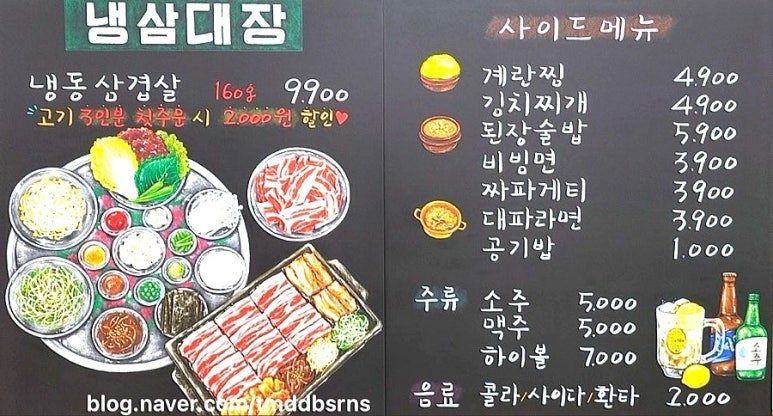 냉삼대장
냉동삼겹살 160g 9.900
고기 3인분 첫주문 시 2.000원 할인♥
사이드메뉴
계란찜 4.900
김치찌개 4.900
된장술밥 5.900
비빔면 3.900
짜파게티 3.900
대파라면 3.900
공기밥 1.000
주류 소주 5.000
맥주 5.000
하이볼 7.000
음료 콜라/사이다/환타 2.000
소주
blog.naver.com/tmddbsrns